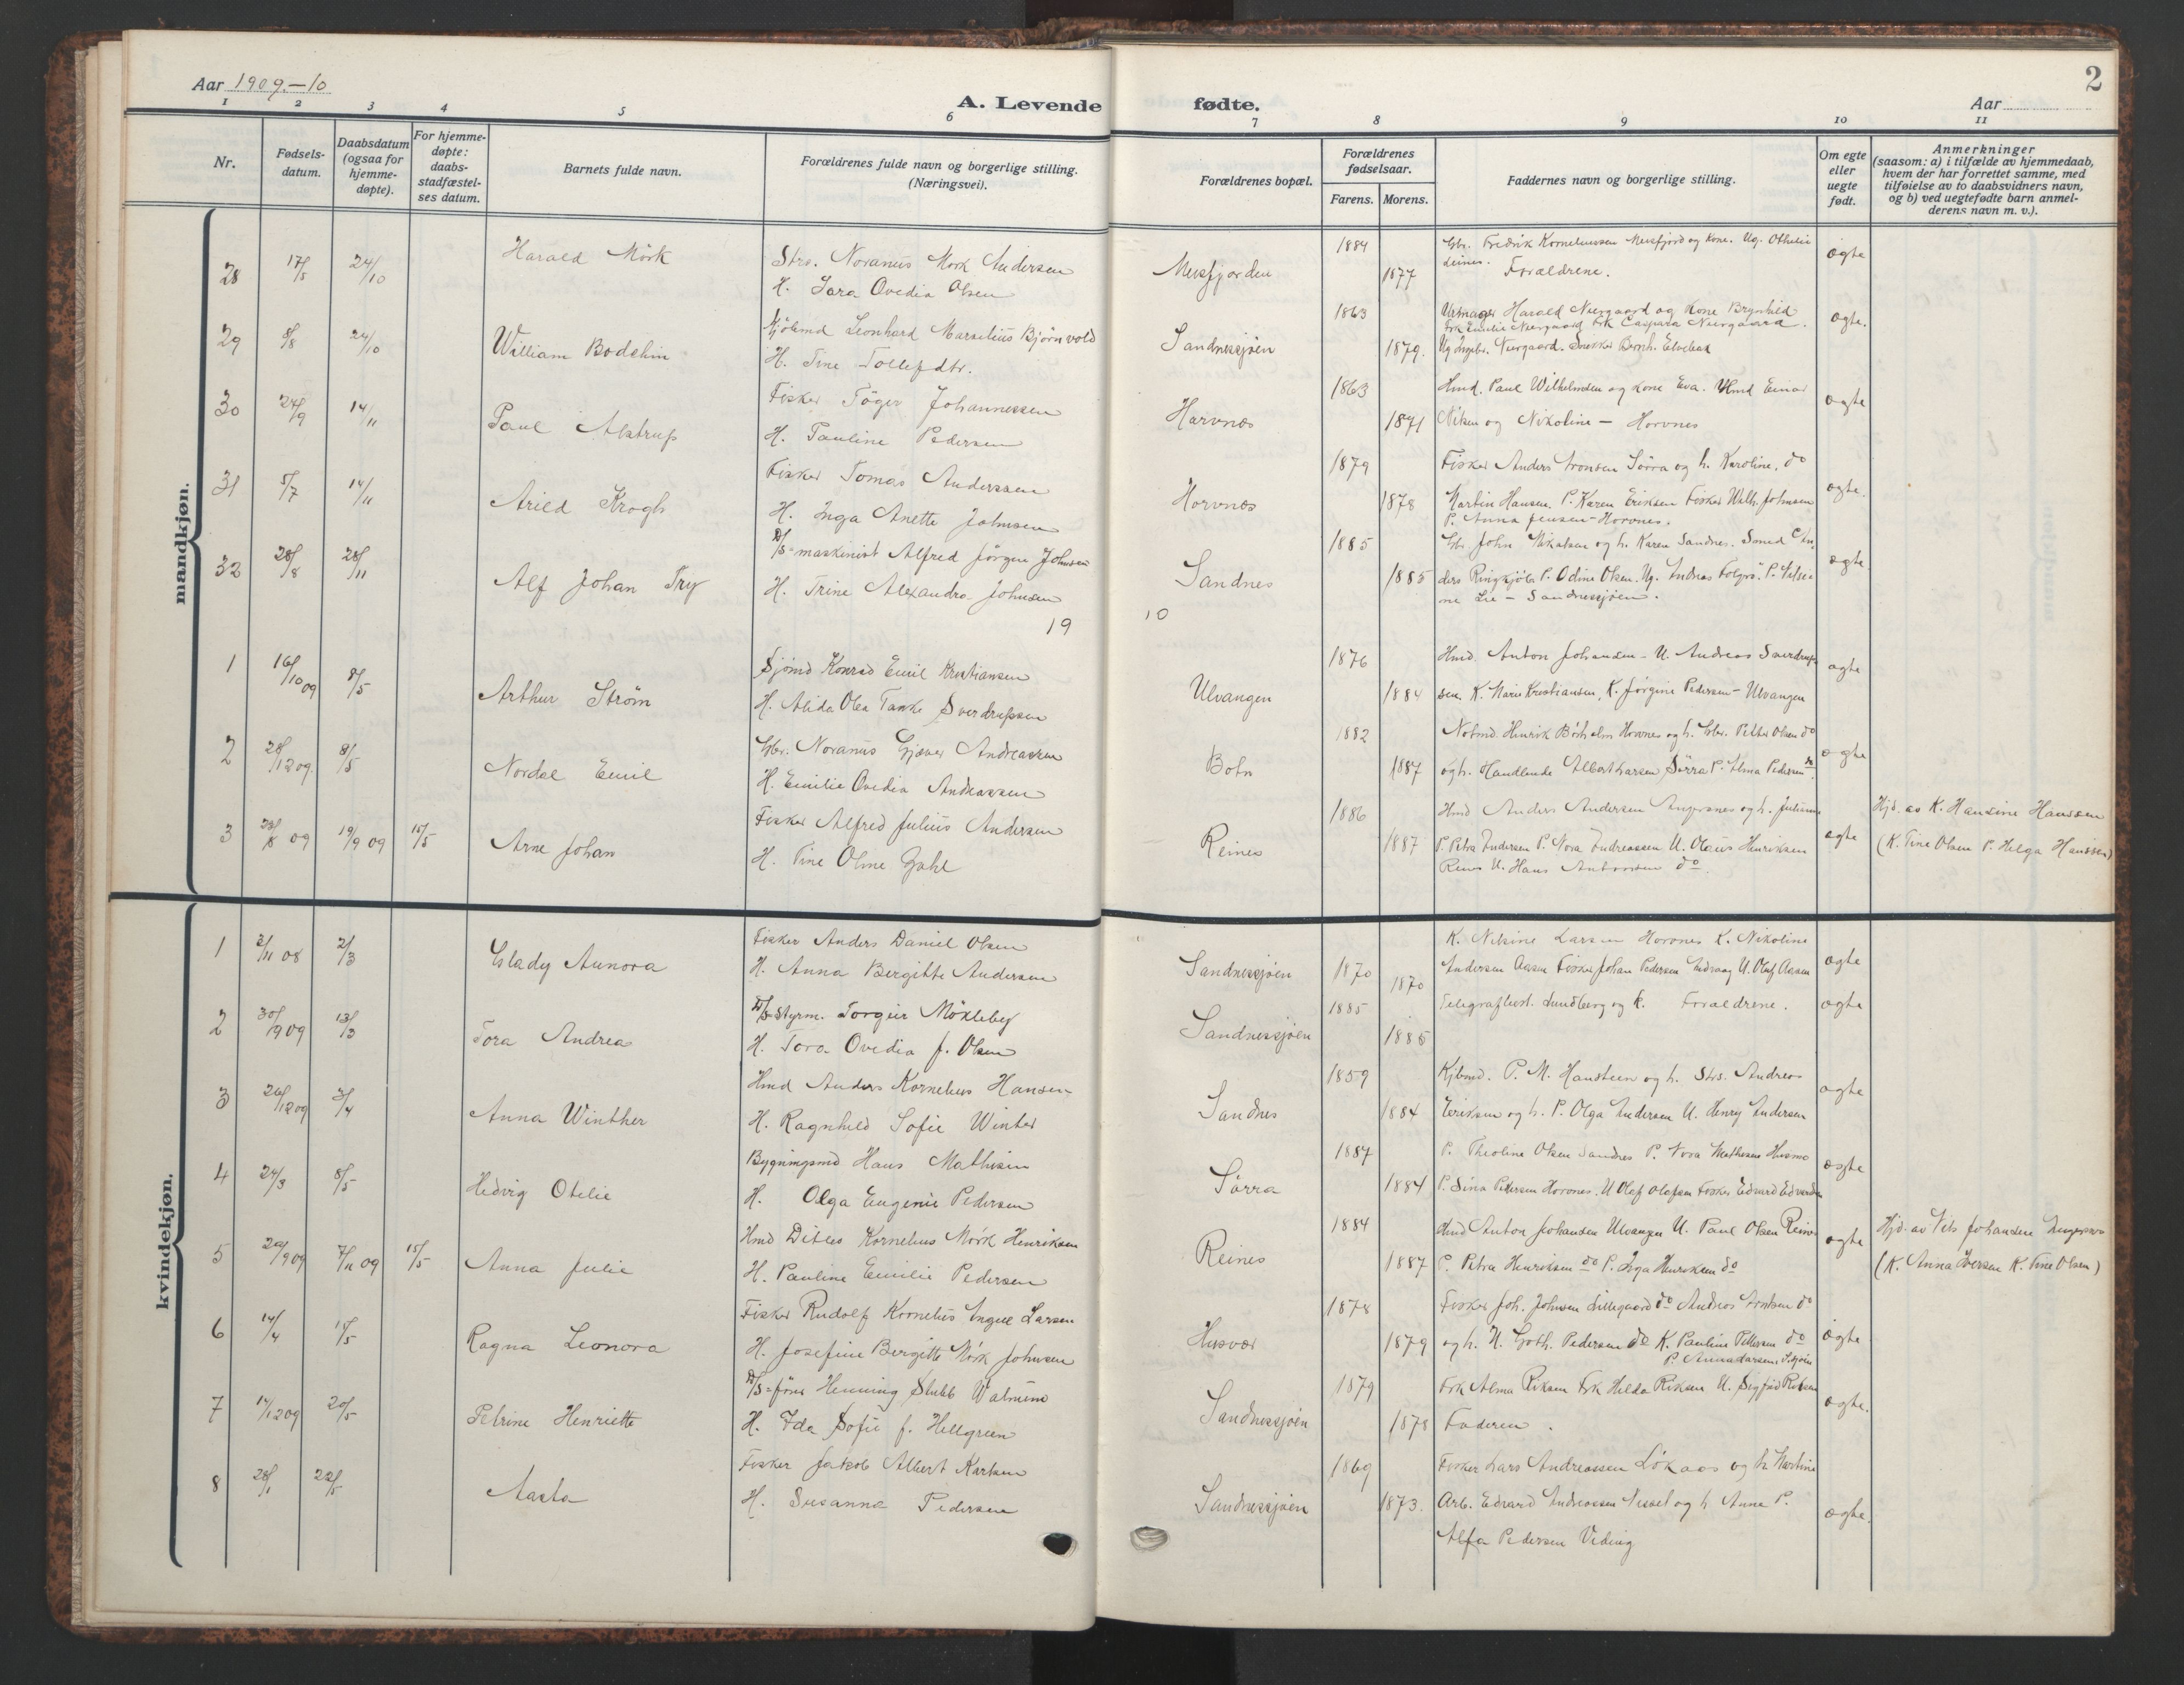 Aar 1909.-10
A. Levende fødte.
Aar
2
1 2 3 4 5 6 7 8 9 10 11
Nr.
Fødsels-
datum.
Daabsdatum
(ogsaa for
hjemme-
døpte).
For hjemme-
døpte:
daabs-
stadfæstel-
ses datum.
Barnets fulde navn.
Forældrenes fulde navn og borgerlige stilling.
(Næringsvei).
Forældrenes bopæl.
Forældrenes
fødselsaar.
Farens. Morens.
Faddernes navn og borgerlige stilling.
Om egte
eller
uegte
født.
Anmerkninger
(saasom: a) i tilfælde av hjemmedaab,
hvem der har forrettet samme, med
tilføielse av to daabsvidners navn,
og b) ved uegtefødte barn anmel-
derens navn m. v.).
mandkjøn.
28 17/5 24/10 Harald Mörk
Strs. Noranus Mork Andersen
H. Sara Ovedia Olsen
Meisfjorden 1884 1877
Gbr. Fredrik Korneliussen Meisfjord og kone. Ug. Othelie
Leines. Forældrene.
ægte
29 8/8 24/10 William Bodehin
Kjöbmd Leonhard Marselius Björnvold
H. Tine Tollefdtr.
Sandnessjöen 1863 1879.
Urmager Harald Neergaard og kone Brynhild
Frk Emilie Neergaard Frk Caspara Neergaard.
Ug Ingebr. Neergaard. Snekker Bernh.
ægte.
30 24/9 14/11 Paul Alstrup
Fisker Töger Johannessen
H. Pauline Pedersen
Harvnes 1863 1871
Hmd. Paul Wilhelmsen og kone Eva. Hmd Einar
Nilsen og Nikoline - Horvnes
ægte
31 5/7 14/11 Arild Krogh
Fisker Tomas Anderssen
H. Inga Anette Johnsen
Horvnes 1879 1878
Fisker Anders Aronsen Sörra og h. Karoline, do
Martin Hansen. P. Karen Eriksen Fisker Wilh. Johnsen
P. Anna Jensen - Horvnes.
ægte.
32 28/8 28/11 Alf Johan Try
D/S-maskinist Alfred Jörgen Johnsen
H. Trine Alexandra Johnsen
Sandnes 1885 1885
Gbr John Mikalsen og h. Karen Sandnes. Smed An-
ders Ringkjöb P. Odine Olsen. Ug. Andreas P. Nilsi-
ne Lie - Sandnessjöen.
ægte
19 10
1 16/10 09 8/5 Arthur Ström
Sjömd Konrad Emil Kristiansen
H. Alida Olea Tanke Sverdrupsen
Ulvangen 1876 1884
Hmd. Anton Johansen - U. Andreas Sverdrup-
sen. K. Marie Kristiansen, K. Jörgine Pedersen - Ulvangen
ægte
2 28/12 09. 8/5 Nordal Emil
Gbr. Noranus Gjæver Andreassen
H. Emilie Ovedia Andreassen
Botn 1882 1887
Notmd. Henrik Horvnes og h. Gbr. Petter Olsen do
og h. Handlende Albert Larsen Sörra P. Alma Pedersen do.
ægte
3 23/8 09 19/9 09 15/5 Arne Johan
Fisker Alfred Julius Andersen
H. Tine Oline Zahl
Reines 1886 1887
Hmd Anders Andersen og h. Julianne
P. Petra Andersen P. Nora Andreassen U. Olaus Henriksen
Reines U. Hans Antonsen do.
ægte
Hjd. av K. Hansine Hanssen
(K. Tine Olsen P. Helga Hanssen)
kvindekjøn.
1 3/11 08 2/3 Glady Aunora
Fisker Anders Daniel Olsen
H. Anna Bergitte Andersen
Sandnessjöen 1870 1870
K. Nilsine Larsen Horvnes K. Nikoline
Andersen Aasen Fisker Johan Pedersen U. Olaf Aasen
ægte
2 30/9 09 13/3 Tora Andrea
D/S-Styrm. Torgeir Mökleby
H. Tora Ovedia f. Olsen
Sandnessjöen 1885 1885
Telegrafbest. Lundberg og k. Forældrene.
ægte
3 26/12 09 3/4 Anna Winther
Hmd Anders Kornelius Hansen
H. Ragnhild Sofie Winter
Sandnes 1859 1884
Kjbmd. P. M. Hansteen og h. Strs. Andreas
Eriksen og h. P. Olga Andersen U. Henry Andersen
ægte
4 24/3 8/5 Hedvig Otelie
Bygningsmd Hans Mathisen
H. Olga Eugenie Pedersen
Sörra 1887 1884
P. Theoline Olsen Sandnes P. Nora Mathisen Husmo
P. Sina Pedersen Horvnes. U Olaf Olafsen Fisker Edvard Edvardsen
ægte
5 20/9 09 7/11 09 15/5 Anna Julie
Hmd Ditlev Kornelius Mörk Henriksen
H. Pauline Emilie Pedersen
Reines 1884 1887
Hmd Anton Johansen Ulvangen U. Paul Olsen Reines
P. Petra Henriksen do P. Inga Henriksen do
ægte
Hjd. av Nils Johansen
(K. Anna Iversen K. Tine Olsen)
6 14/4 15/5 Ragna Leonora
Fisker Rudolf Kornelius Ingel Larsen
H. Josefine Bergitte Mörk Johnsen
Husvær 1878 1879
Fisker Joh. Johnsen Lillegaard do Andreas do
og h. U. Goth. Pedersen do K. Pauline Pettersen do
P. Anna Larsen, Sdsjöen
ægte
7 14/12 09 20/5 Petrine Henriette
D/S-förer Henning Stubb
H. Ida Sofie f. Hellgreen
Sandnessjöen 1879 1878
Frk Alma Riksen Frk Hilda Riksen U. Sigfrid Riksen
Faderen.
ægte.
8 28/1 22/5 Aasta
Fisker Jakob Albert Karlsen
H. Susanna Pedersen
Sandnessjöen 1869 1873.
Fisker Lars Andreassen Lökaas og h. Martine
Arb. Edvard Andreassen og h Anna P.
Alfa Pedersen Veding
ægte.